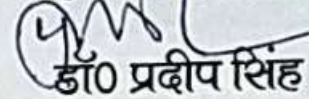 डॉ0 प्रदीप सिंह